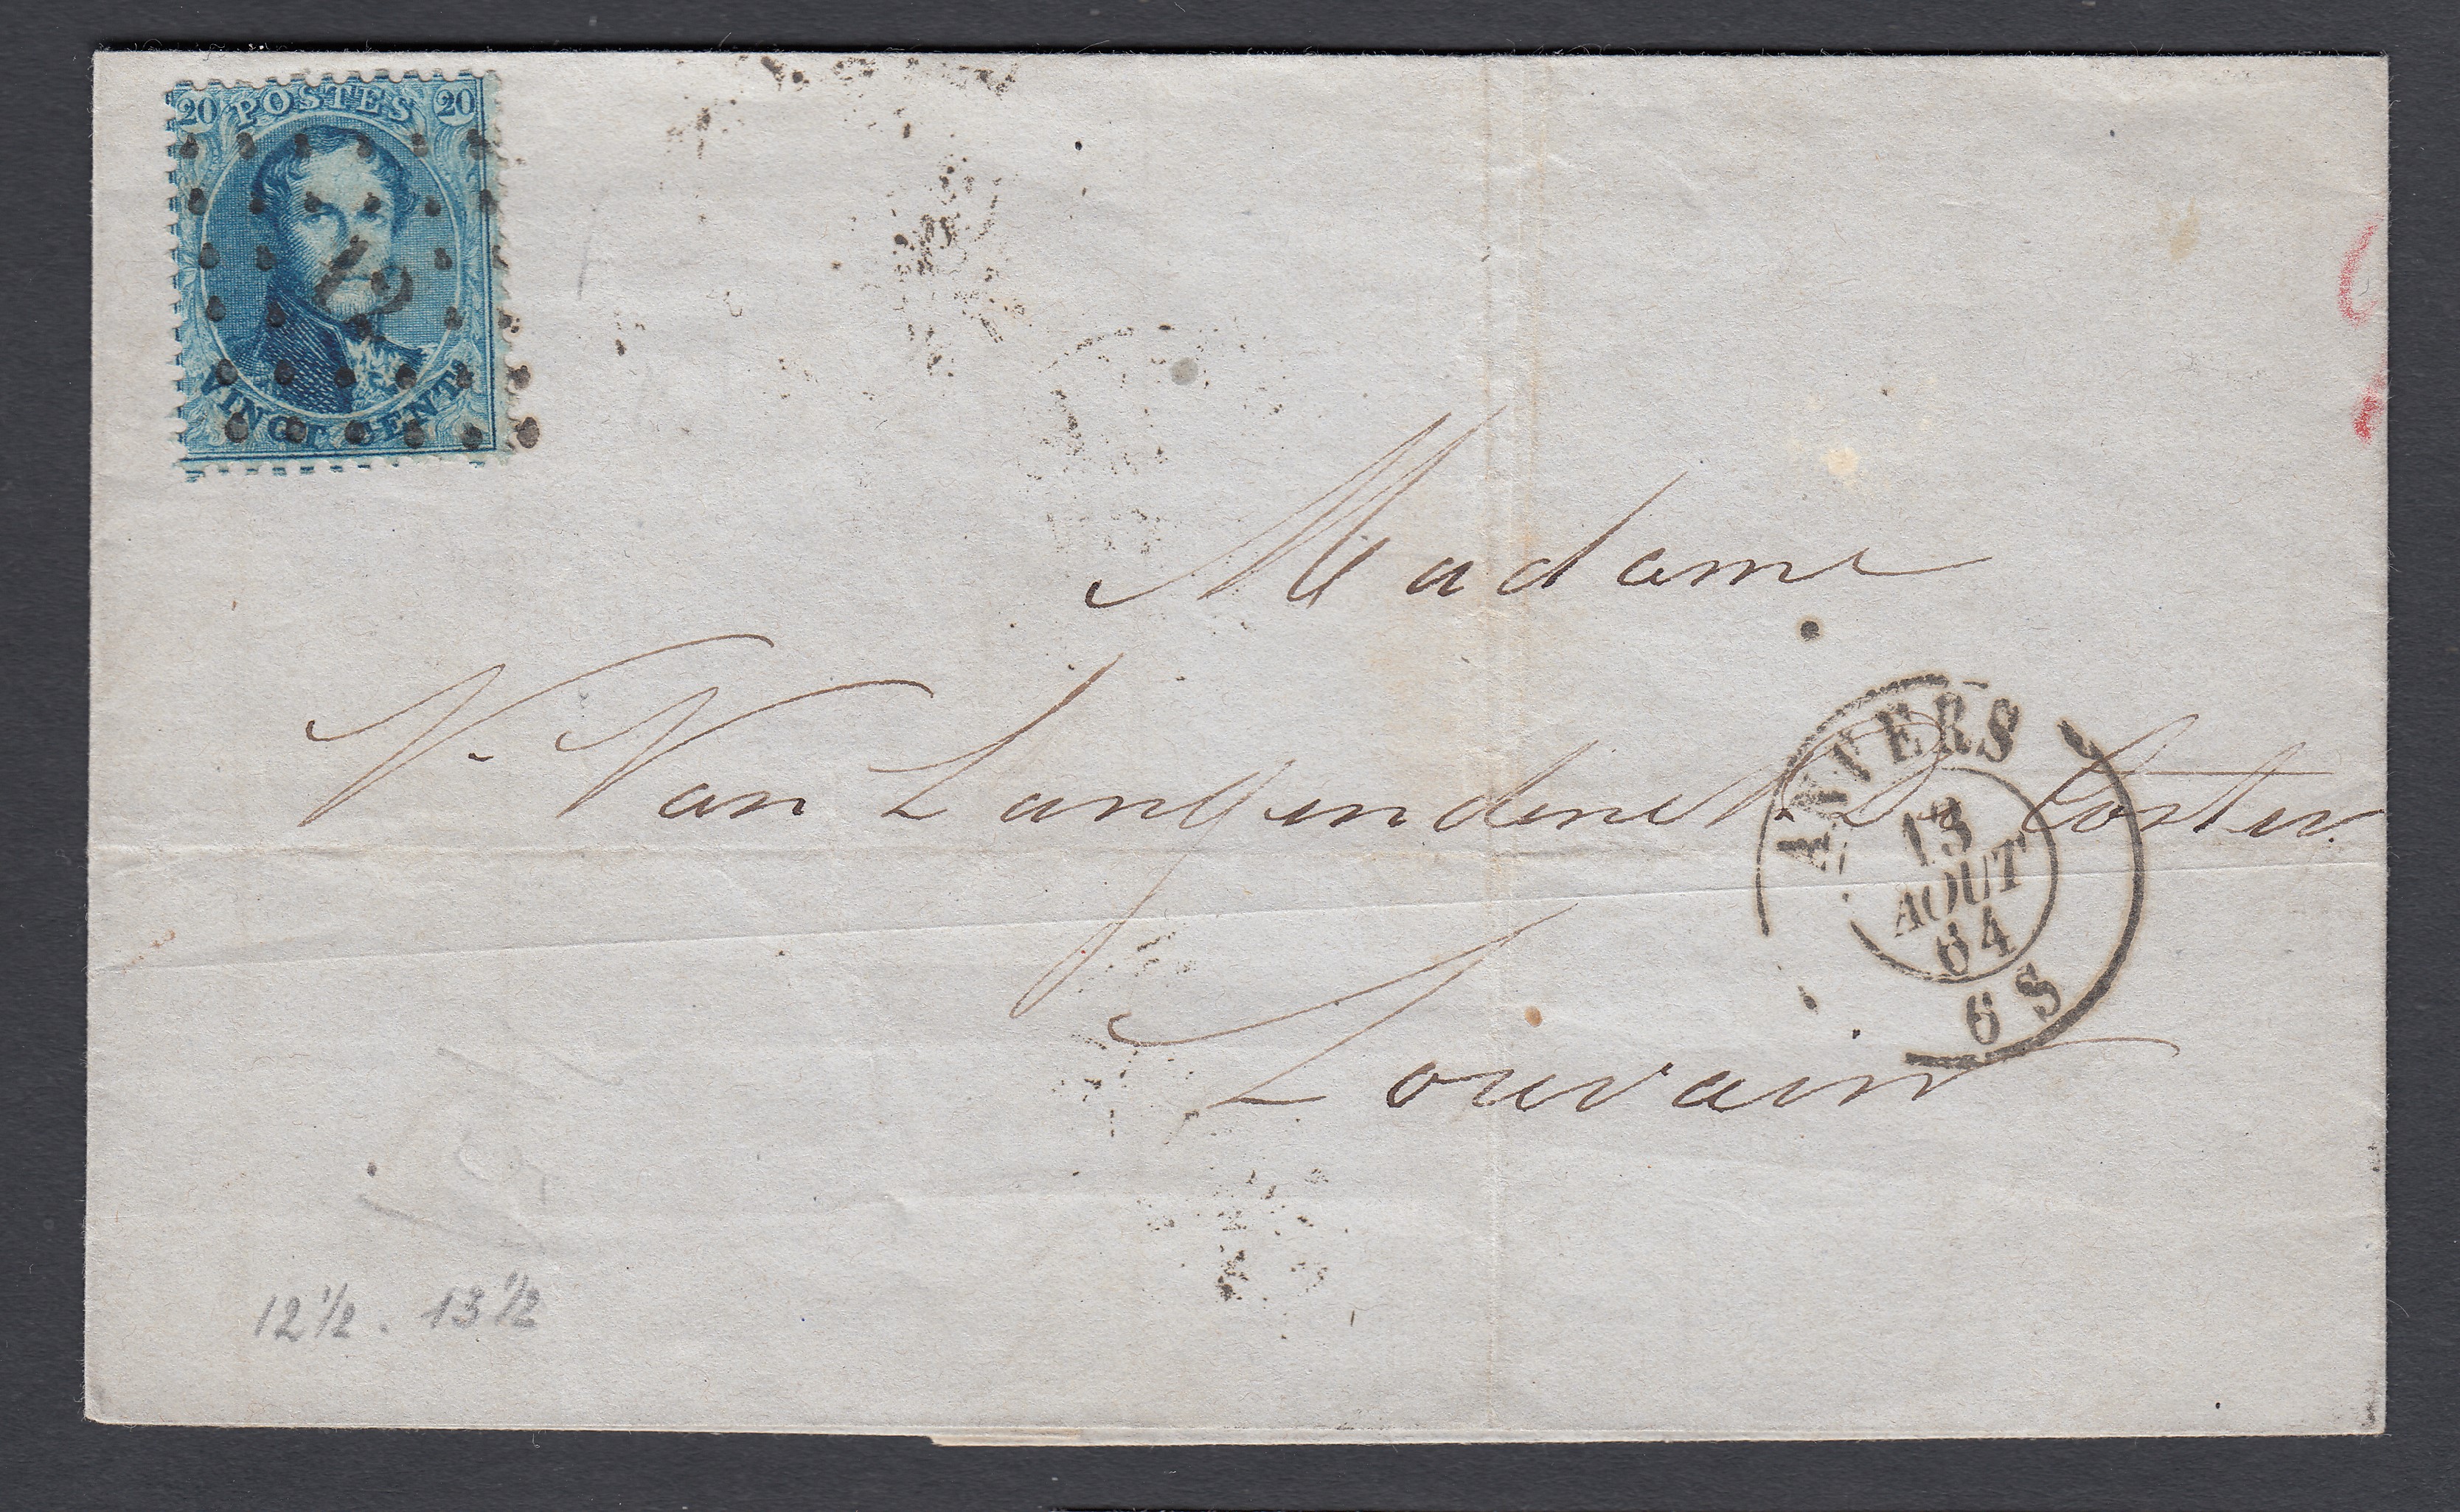 20 POSTES 20
12
VINGT CENT
Madame
V. Van Langendonck D Coster
Louvain
ANVERS
13
AOUT
64
6 S
12 1/2 . 13 1/2